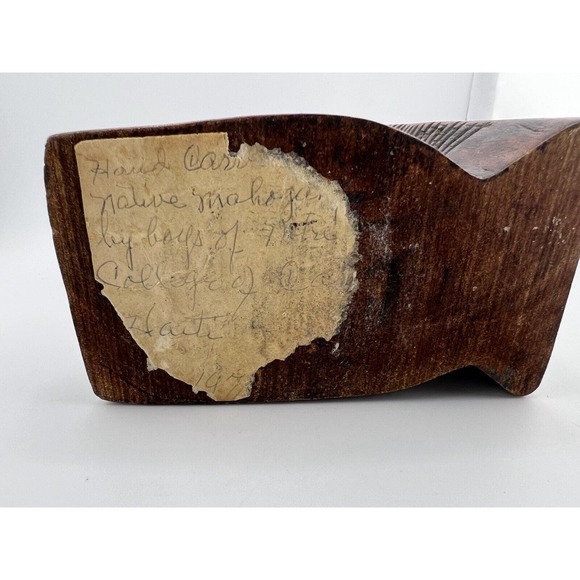 Hand Car
native mahogany
by boys of Notre
College of
Haiti
19